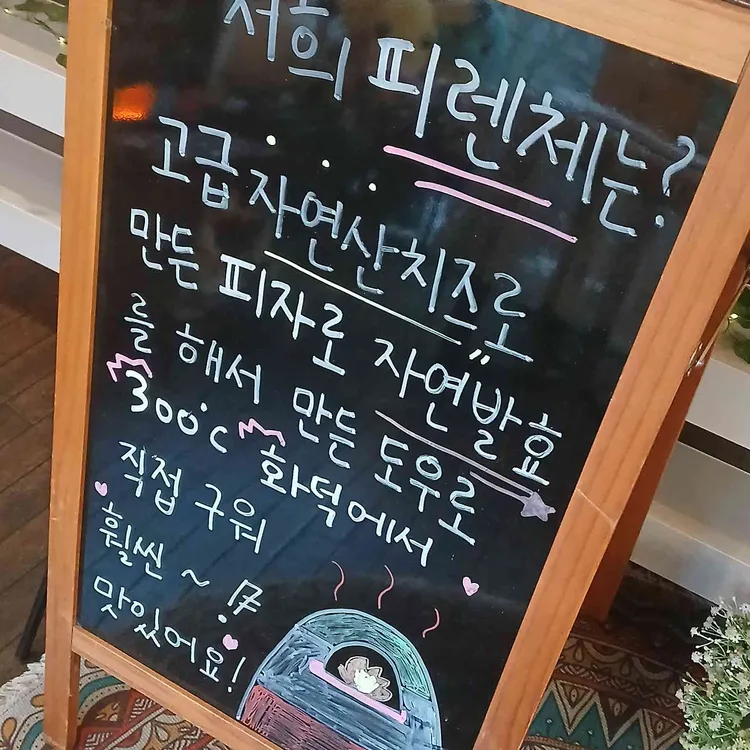 저희 피렌체는?
고급 자연산치즈로
만든 피자로 자연발효
를 해서 만든 도우로
300℃ 화덕에서
직접 구워
훨씬 ~
맛있어요!